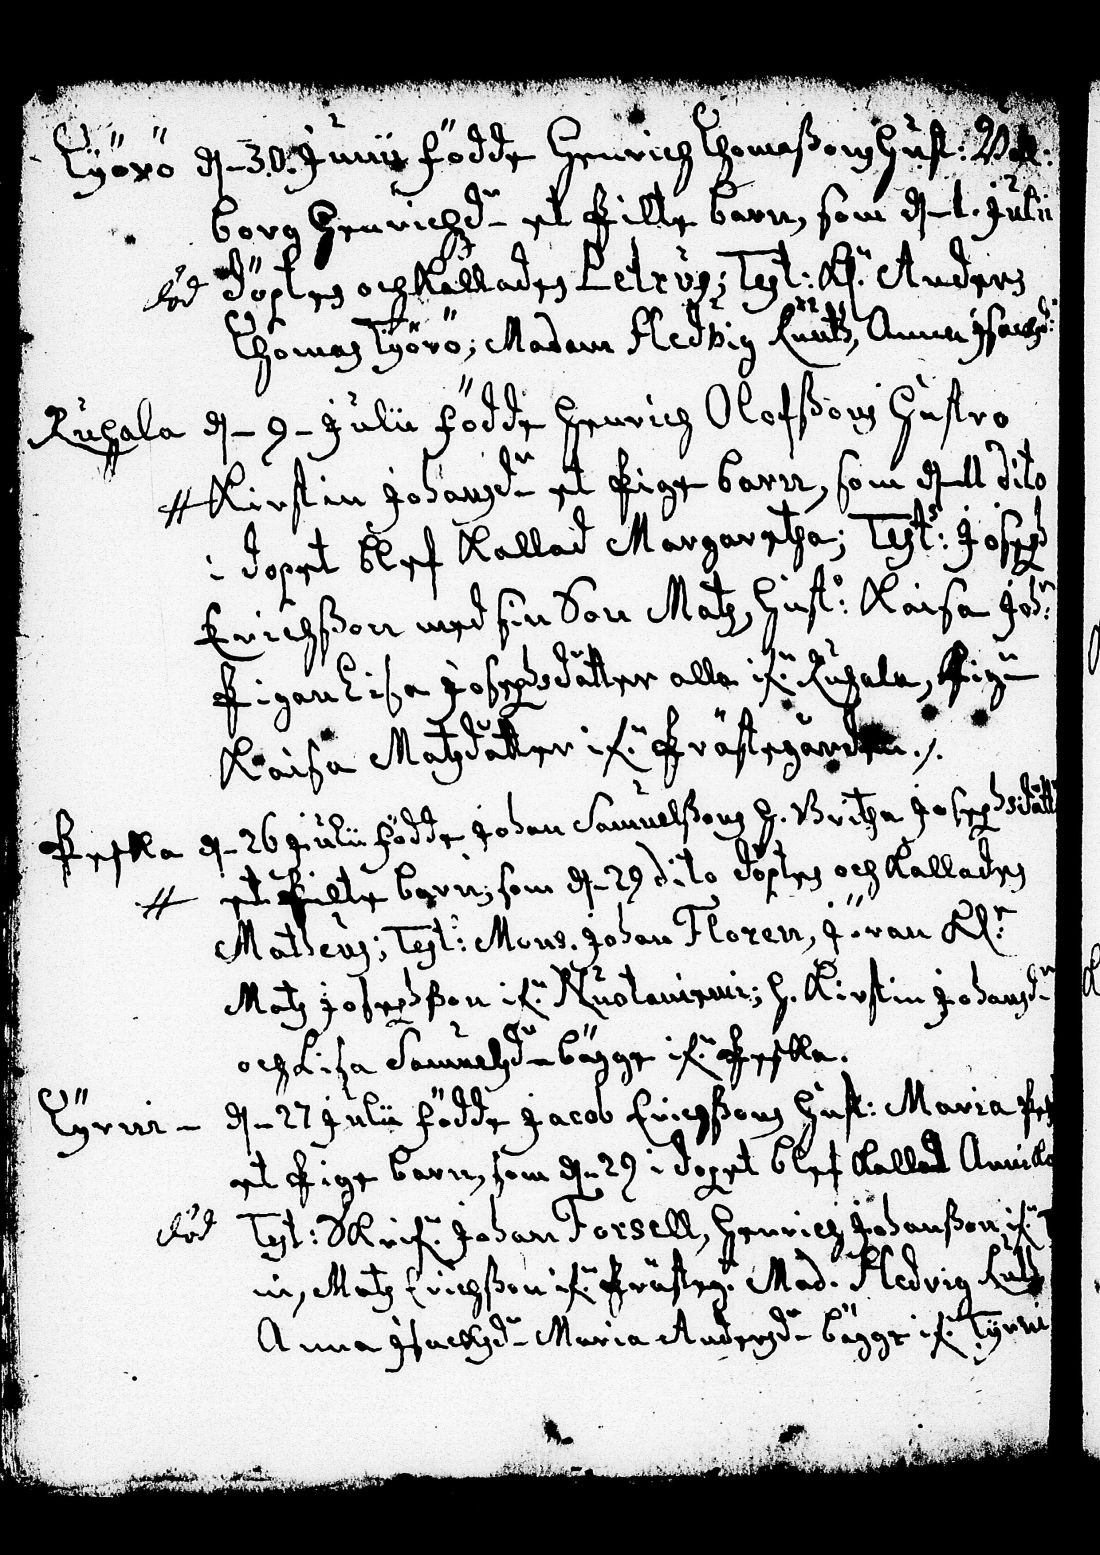 Työrö d. 30. Junii födde Henrich Thomaßons Hust: Wal:
borg Henrichsd: et Pilte barn, som d. 1. Julii
död döptes och Kallades Petrus; Test: Anders
Thomas Työrö; Madam Hedvig, Anna Jsachsd:
Ruhala d. 9. Julii födde Henrich Olofßons Hustro
# Kirstin Johansd: et Pige barn, som d. 11 dito
i dopet blef Kallad Margaretha; Test: Joseph
Erichßon med sin Son Matz, Hust: Kaisa Joh:
Pigan Lisa Josephsdåtter alla if: Ruhala, Pig:
Kaisa Matzdåtter if: Prästegården ./.
Peskla d. 26 Julii födde Johan Samuelßons H. Britha Josephsdått
# et Pilte barn, som d. 29 dito döptes och Kallades
Matheus; Test: Mons. Johan Floren, Jöran
Matz Josephßon if: Nuolaniemi; H. Kirstin Johansd:
och Lisa Samuelsd: bägge if: Peskla.
Tyrni d. 27 Julii födde Jacob Erichßons Hust: Maria
et Pige barn, som d. 29 i dopet blef Kallad Annika
död Test: Skrif: Johan Forsell, Henrich Johanßon if: T
in, Matz Erichßon if: Prästeg: Mad. Hedvig
Anna Jsachsd: Maria Andersd: bägge if: Tyrni